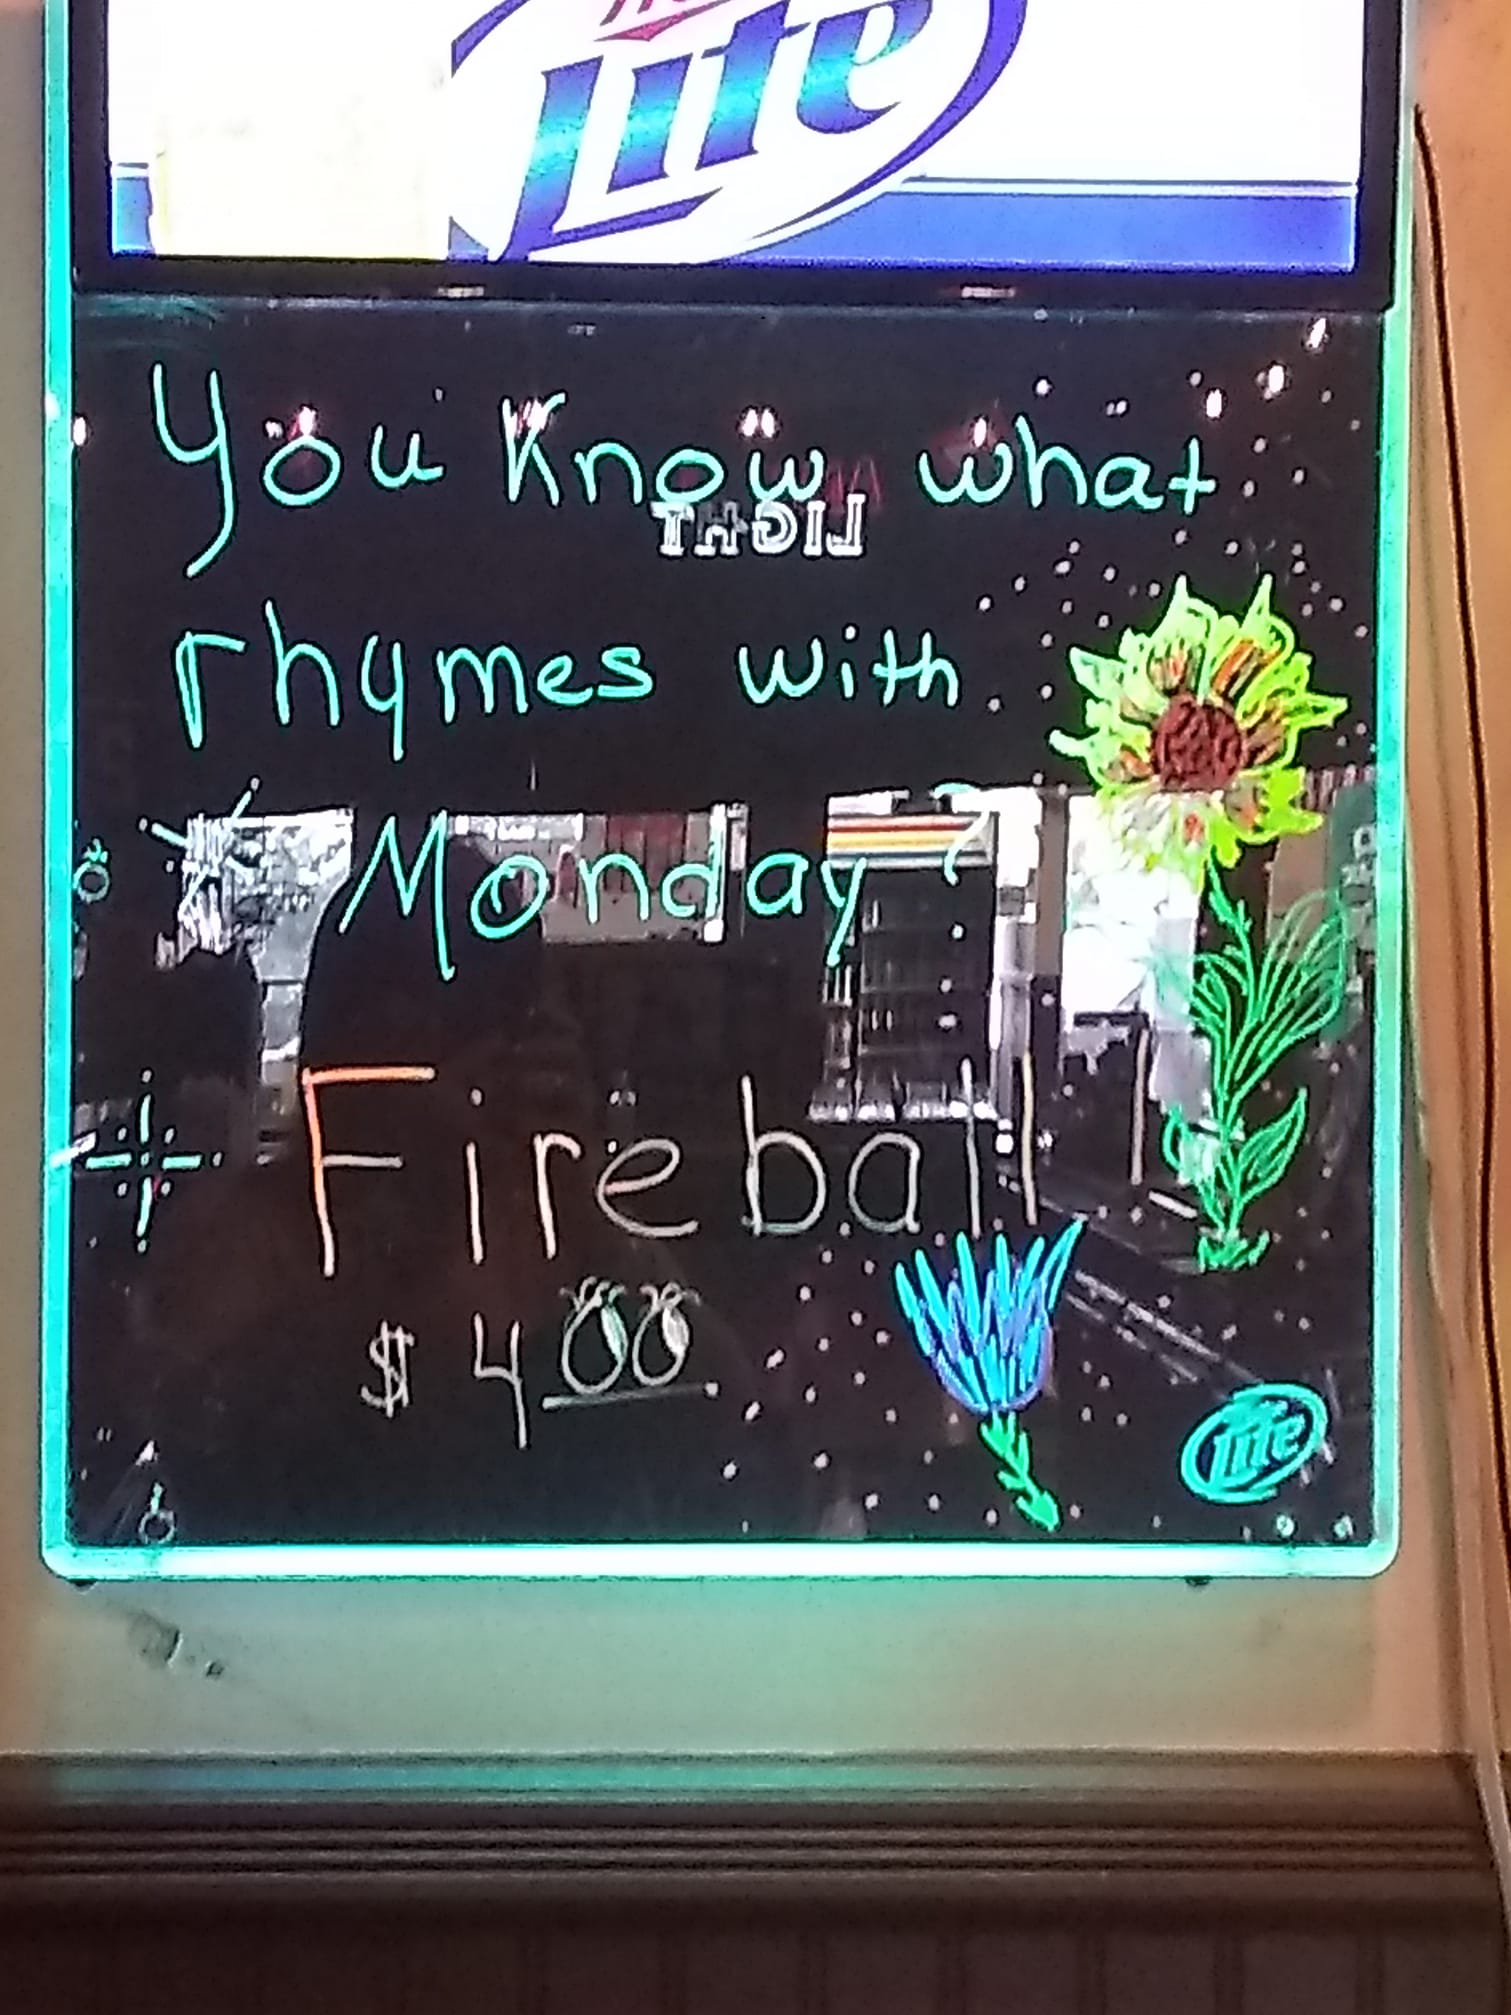 Lite
You Know what
LIGHT
rhymes with
Monday?
Fireball
$ 4.00
Lite